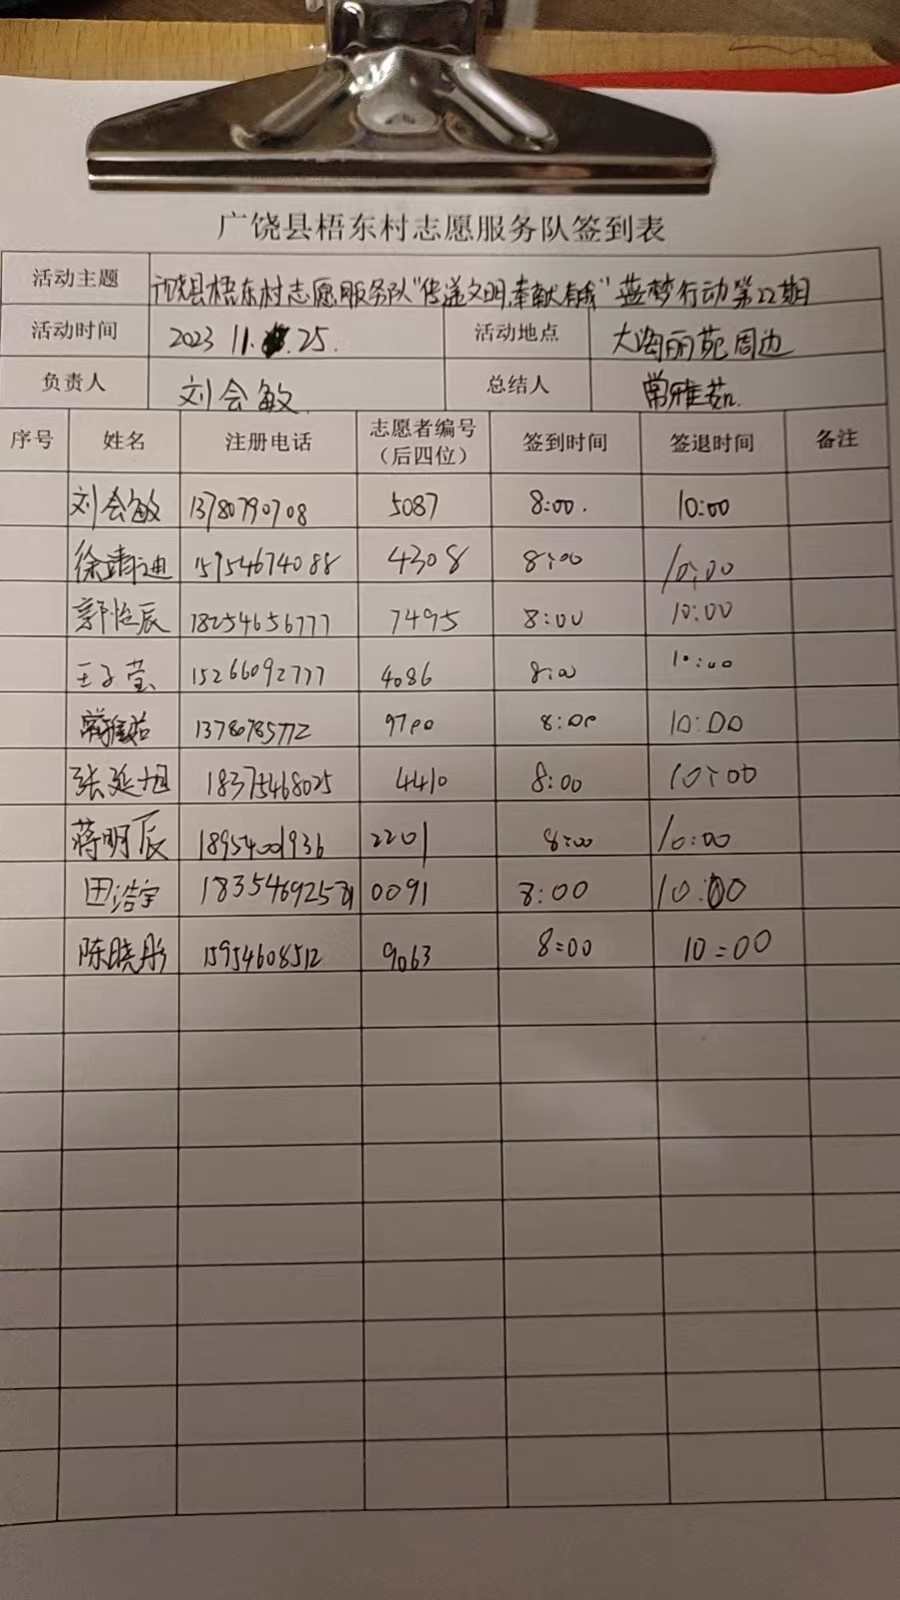 广饶县梧东村志愿服务队签到表
活动主题 广饶县梧东村志愿服务队“传递文明,奉献有我”蓝梦行动第22期
活动时间 2023 11. 25. 活动地点 大海丽苑周边
负责人 刘会敏 总结人 常雅茹.
序号 姓名 注册电话 志愿者编号（后四位） 签到时间 签退时间 备注
刘会敏 13780790708 5087 8:00. 10:00
徐靖迪 15954674088 4308 8:00 10:00
郭怡辰 18254656777 7495 8:00 10:00
王子莹 15266092777 4086 8:00 10:00
常雅茹 13780785772 9700 8:00 10:00
张延旭 18375468025 4410 8:00 10:00
蒋明辰 18954001936 2201 8:00 10:00
田浩宇 0091 8:00 10:00
陈晓彤 15954608512 9063 8:00 10:00